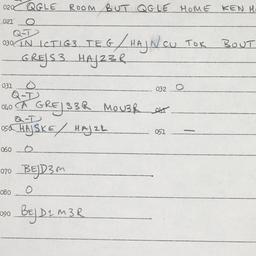 020 QGLE ROOM BUT QGLE HOME KEN H
021 O
Q-T
030 IN ICTIG3 TEG/HAJNCU TOK BOUT
GREJS3 HAJ23R
031 O 032 O
Q-T
040 A GREJS3R MOU3R
Q-T
050 HAJSKE/ HAJ2L 051 —
060 O
070 BEJD3M
080 O
090 BEJD1M3R